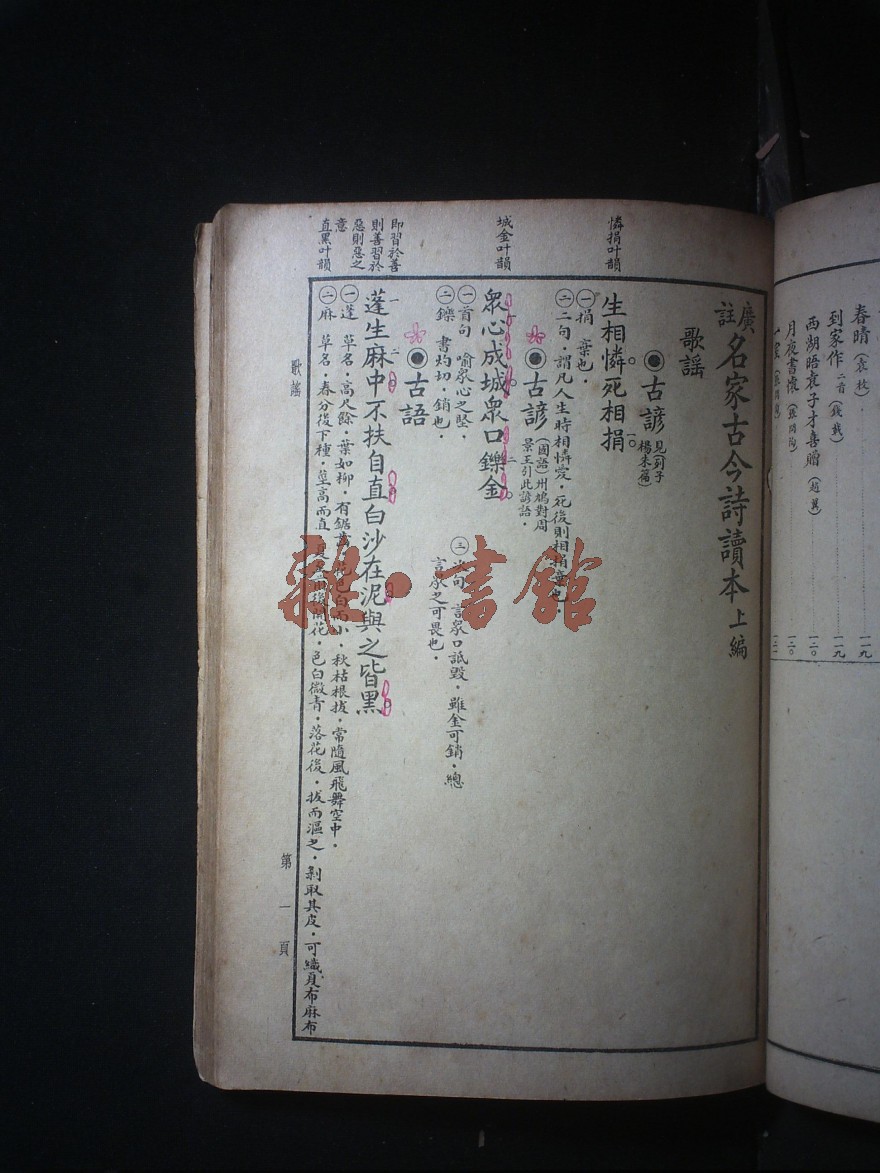 春晴（袁枚）
一一九
到家作二首（錢載）
一一九
西湖晤袁子才喜贈（趙翼）
一二〇
月夜書懷
一二〇
憐捐叶韻
城金叶韻
即習於善
則善習於
惡則惡之
意
直黑叶韻
廣註名家古今詩讀本上編
歌謠
◉古諺（見列子楊朱篇）
生相憐死相捐
㊀捐　棄也．
㊁二句．謂凡人生時相憐愛．死後則相捐棄也．
◉古諺（國語）州鳩對周景王引此諺語．
眾心成城眾口鑠金
㊀首句　喻眾心之堅．
㊁鑠　書灼切．銷也．
㊂次句　言眾口詆毀．雖金可銷．總
言眾之可畏也．
◉古語
蓬生麻中不扶自直白沙在泥與之皆黑
㊀蓬　草名．高尺餘．葉如柳．有鋸齒．花色白而小．秋枯根拔．常隨風飛舞空中．
㊁麻　草名．春分後下種．莖高而直　後開花．色白微青．落花後．拔而漚之．剝取其皮．可織夏布麻布
歌謠
第一頁
雜·書館